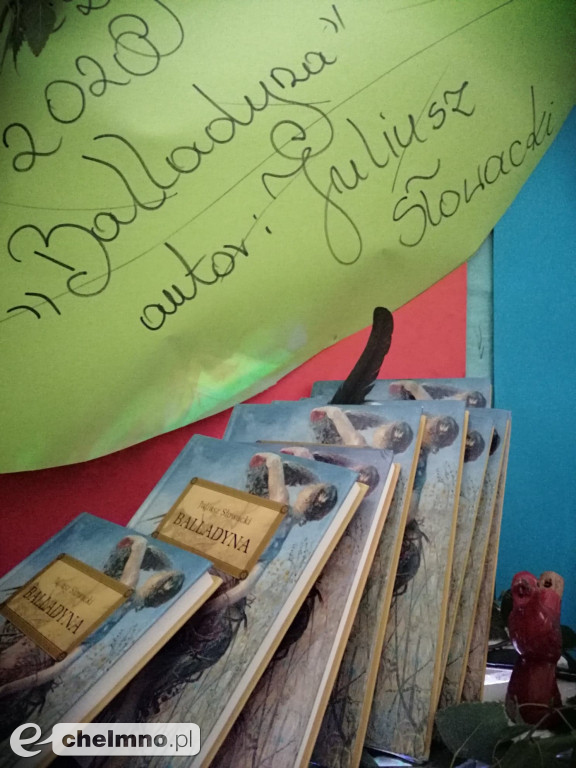 2020
„Balladyna”
autor: Juliusz
Słowacki
Juliusz Słowacki
BALLADYNA
Juliusz Słowacki
BALLADYNA
e chelmno.pl